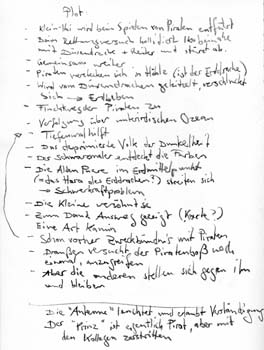 Plot:
- Klein-Yki wird beim Spielen von Piraten entführt
- Beim Rettungsversuch kollidiert Hochginate
mit Dünendrache + Reiter und stürzt ab.
- Gemeinsam weiter
- Piraten verstecken sich in Höhle (ist der Erddrache)
- Wird vom Dünendrachen gekitzelt, verschluckt
sich → Erdbeben
- Fluchtweg der Piraten zu
- Verfolgung über unterirdischen Ozean
- Tiefenwal hilft
- Das deprimierte Volk der Dunkelheit
- Der Schwarzmaler entdeckt die Farben
- Die Alten Paare im Erdmittelpunkt
(= das Herz des Erddrachen?) streiten sich
→ Schwerkraftproblem
- Die Kleine versöhnt sie
- Zum Dank Ausweg gezeigt (Karte?)
- Eine Art Kamin
- Schon vorher Zweckbündnis mit Piraten
- Draußen versucht der Piratenboß noch
einmal, anzugreifen
- Aber die anderen stellen sich gegen ihn
und bleiben
Die "Antenne" leuchtet, und erlaubt Verständigung
Der "Prinz" ist eigentlich Pirat, aber mit
den Kollegen zerstritten